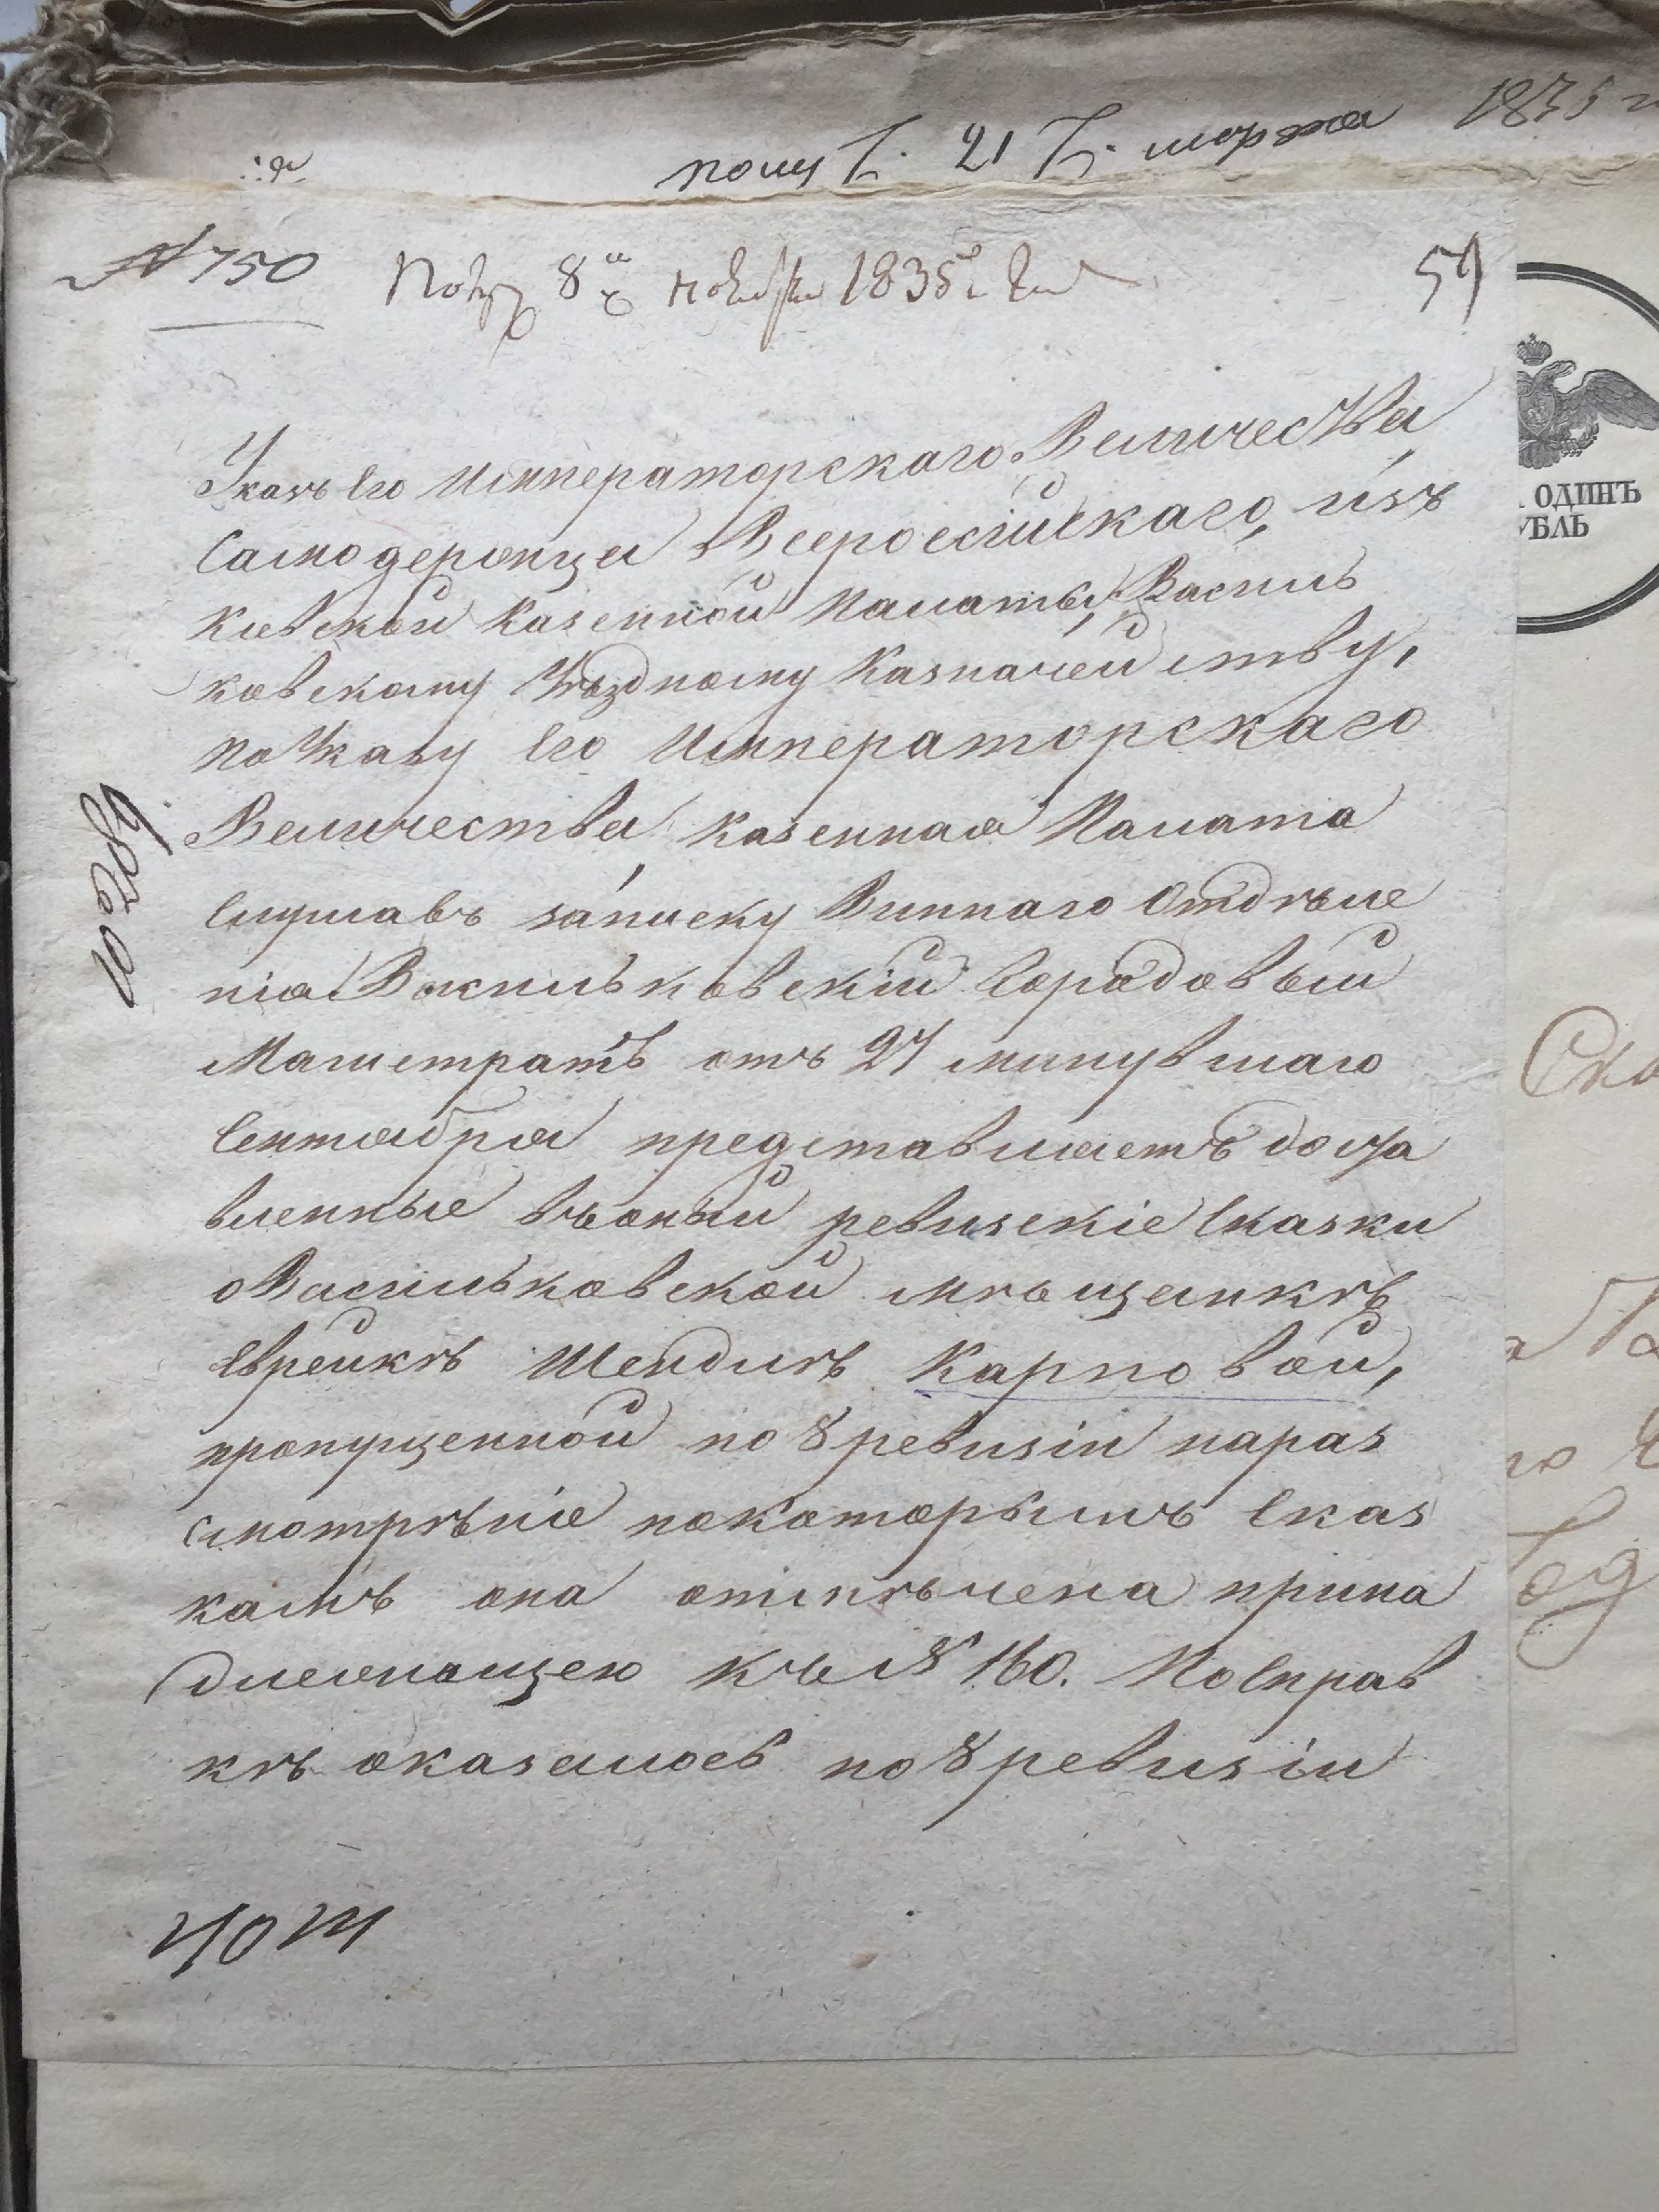 полу: 21 марта 1835
№ 750
Полу: 8 ноября 1835
59
ОДИНЪ
УБЛЬ
Указъ Его Императорскаго Величества
Самодержца Всероссійскаго, изъ
Кіевской Казенной Палаты, Василь
ковскому Уѣздному Казначейству,
По Указу Его Императорскаго
Величества Казенная Палата
Слушавъ записку Виннаго Отдѣле
нія Васильковскій Городовый
Магистратъ отъ 27 минувшаго
Сентября представляетъ доста
вленные въ оный ревизскіе Сказки
о Васильковской мѣщанкѣ
Еврейкѣ Шендлѣ Карповой,
пропущенной по 8 ревизіи на раз
смотрѣніе по которымъ Сказ
камъ она отмѣчена прина
длежащею къ № 160. По Справ
кѣ оказалось по 8 ревизіи
10289